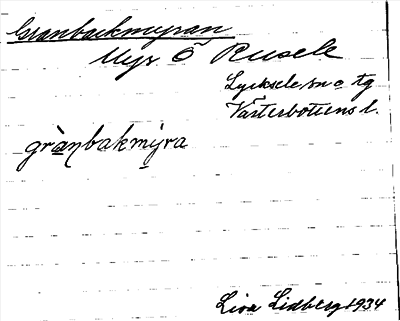 Granbackmyran
Myr Ö Rusele
Lycksele sn o tg
Västerbottens l.
gràn̠bakmy̠ra
Lisa Lidberg 1934